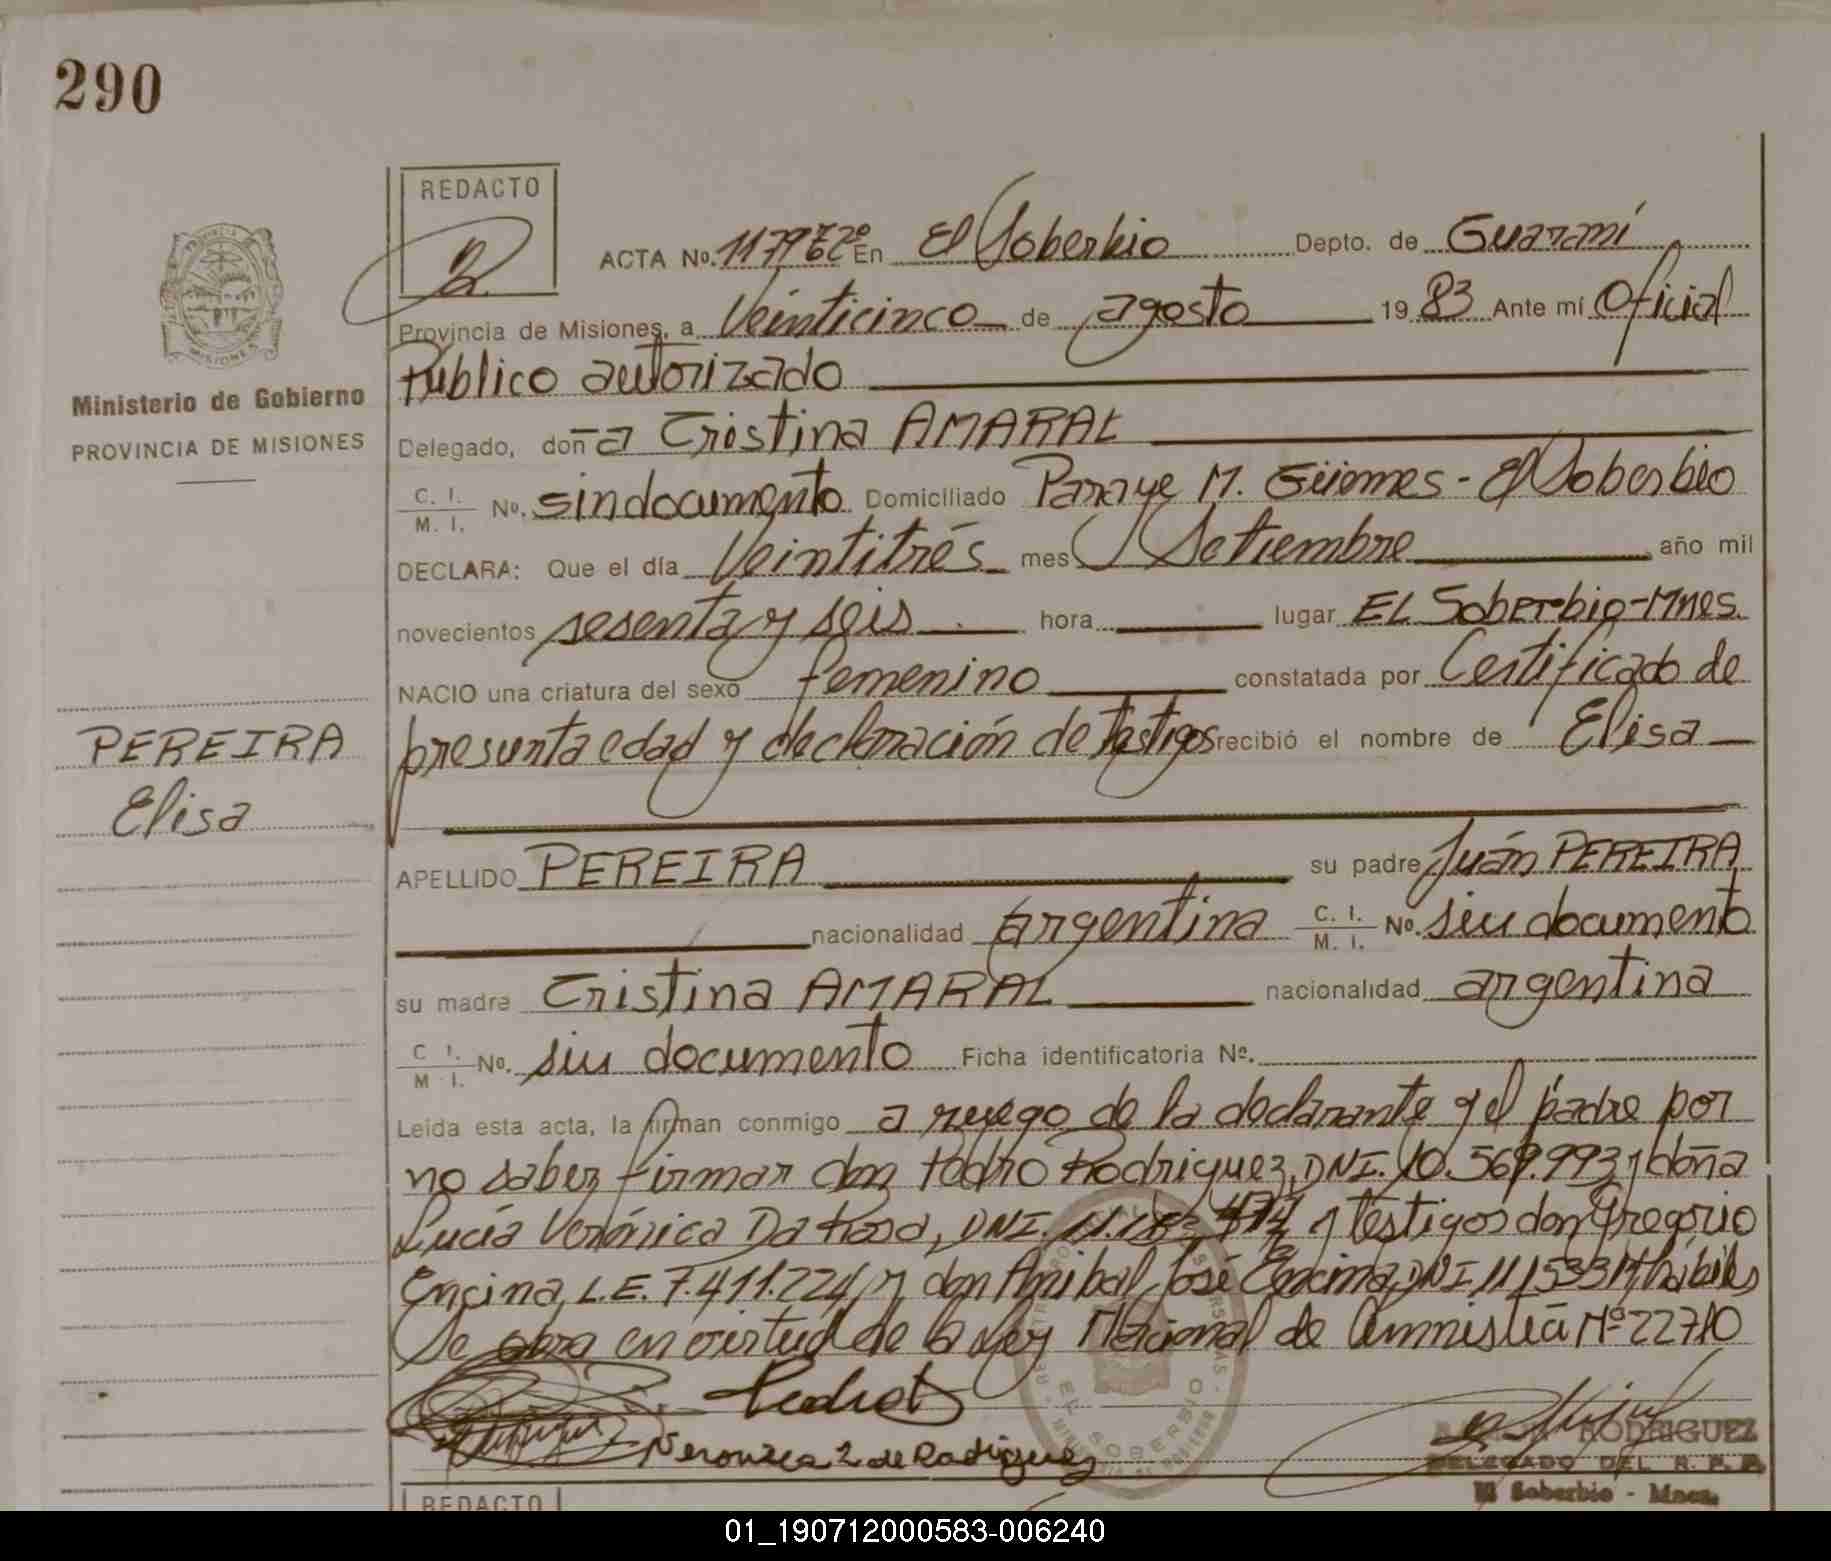 290
REDACTO
ACTA No. 1179 En El Soberbio Depto. de Guaraní
Provincia de Misiones, a Veinticinco de agosto 19 83 Ante mí Oficial
Público autorizado
PROVINCIA DE
MISIONES
Ministerio de Gobierno
PROVINCIA DE MISIONES
Delegado, don a Cristina AMARAL
C. I.
M. I. No. sin documento Domiciliado Paraje M. Güemes - El Soberbio
DECLARA: Que el día Veintitrés mes Setiembre año mil
novecientos sesenta y seis hora lugar EL Soberbio-Mnes.
NACIO una criatura del sexo femenino constatada por Certificado de
presunta edad y declaración de testigos recibió el nombre de Elisa
PEREIRA
Elisa
APELLIDO PEREIRA su padre Juán PEREIRA
nacionalidad argentina C. I. M. I. No. sin documento
su madre Cristina AMARAL nacionalidad argentina
C I. M I. No. sin documento Ficha identificatoria Nº.
Leída esta acta, la firman conmigo a ruego de la declarante y el padre por
no saber firmar don Pedro Rodriguez, DNI. 10.569.993 y doña
Lucía Verónica Da Rosa, DNI. y testigos don Gregorio
Encina, L.E. 7.411.224 y don Anibal José Encina, DNI hábiles
Se obra en virtud de la Ley Nacional de Amnistía Nº 22710
Veronica de Rodriguez
EL SOBERBIO
RODRIGUEZ
DELEGADO DEL R. P. P.
El Soberbio - Mnes.
REDACTO
01_190712000583-006240